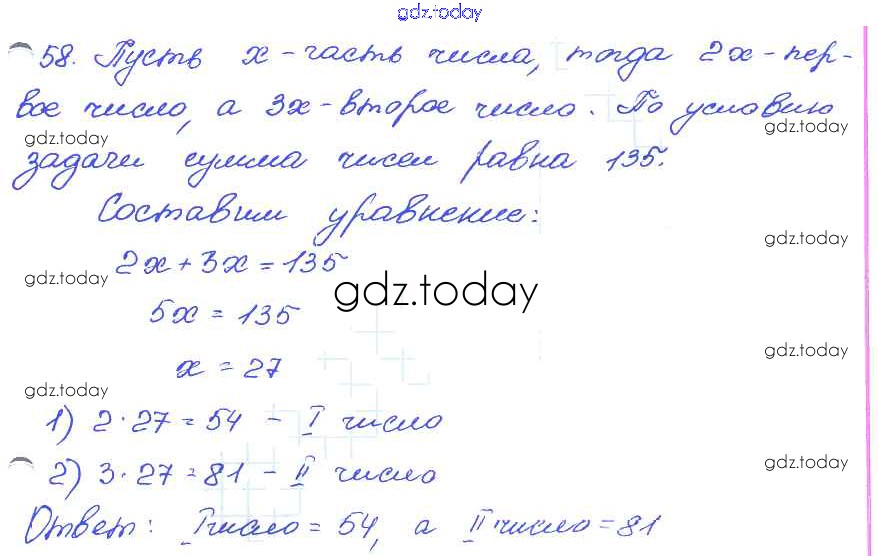 gdz.today
58. Пусть x - часть числа, тогда 2x - пер-
вое число, а 3x - второе число. По условию
gdz.today
gdz.today
задачи сумма чисел равна 135.
Составим уравнение:
gdz.today
2x + 3x = 135
gdz.today
gdz.today
5x = 135
gdz.today
x = 27
gdz.today
1) 2 · 27 = 54 - I число
gdz.today
2) 3 · 27 = 81 - II число
Ответ: I число = 54, а II число = 81